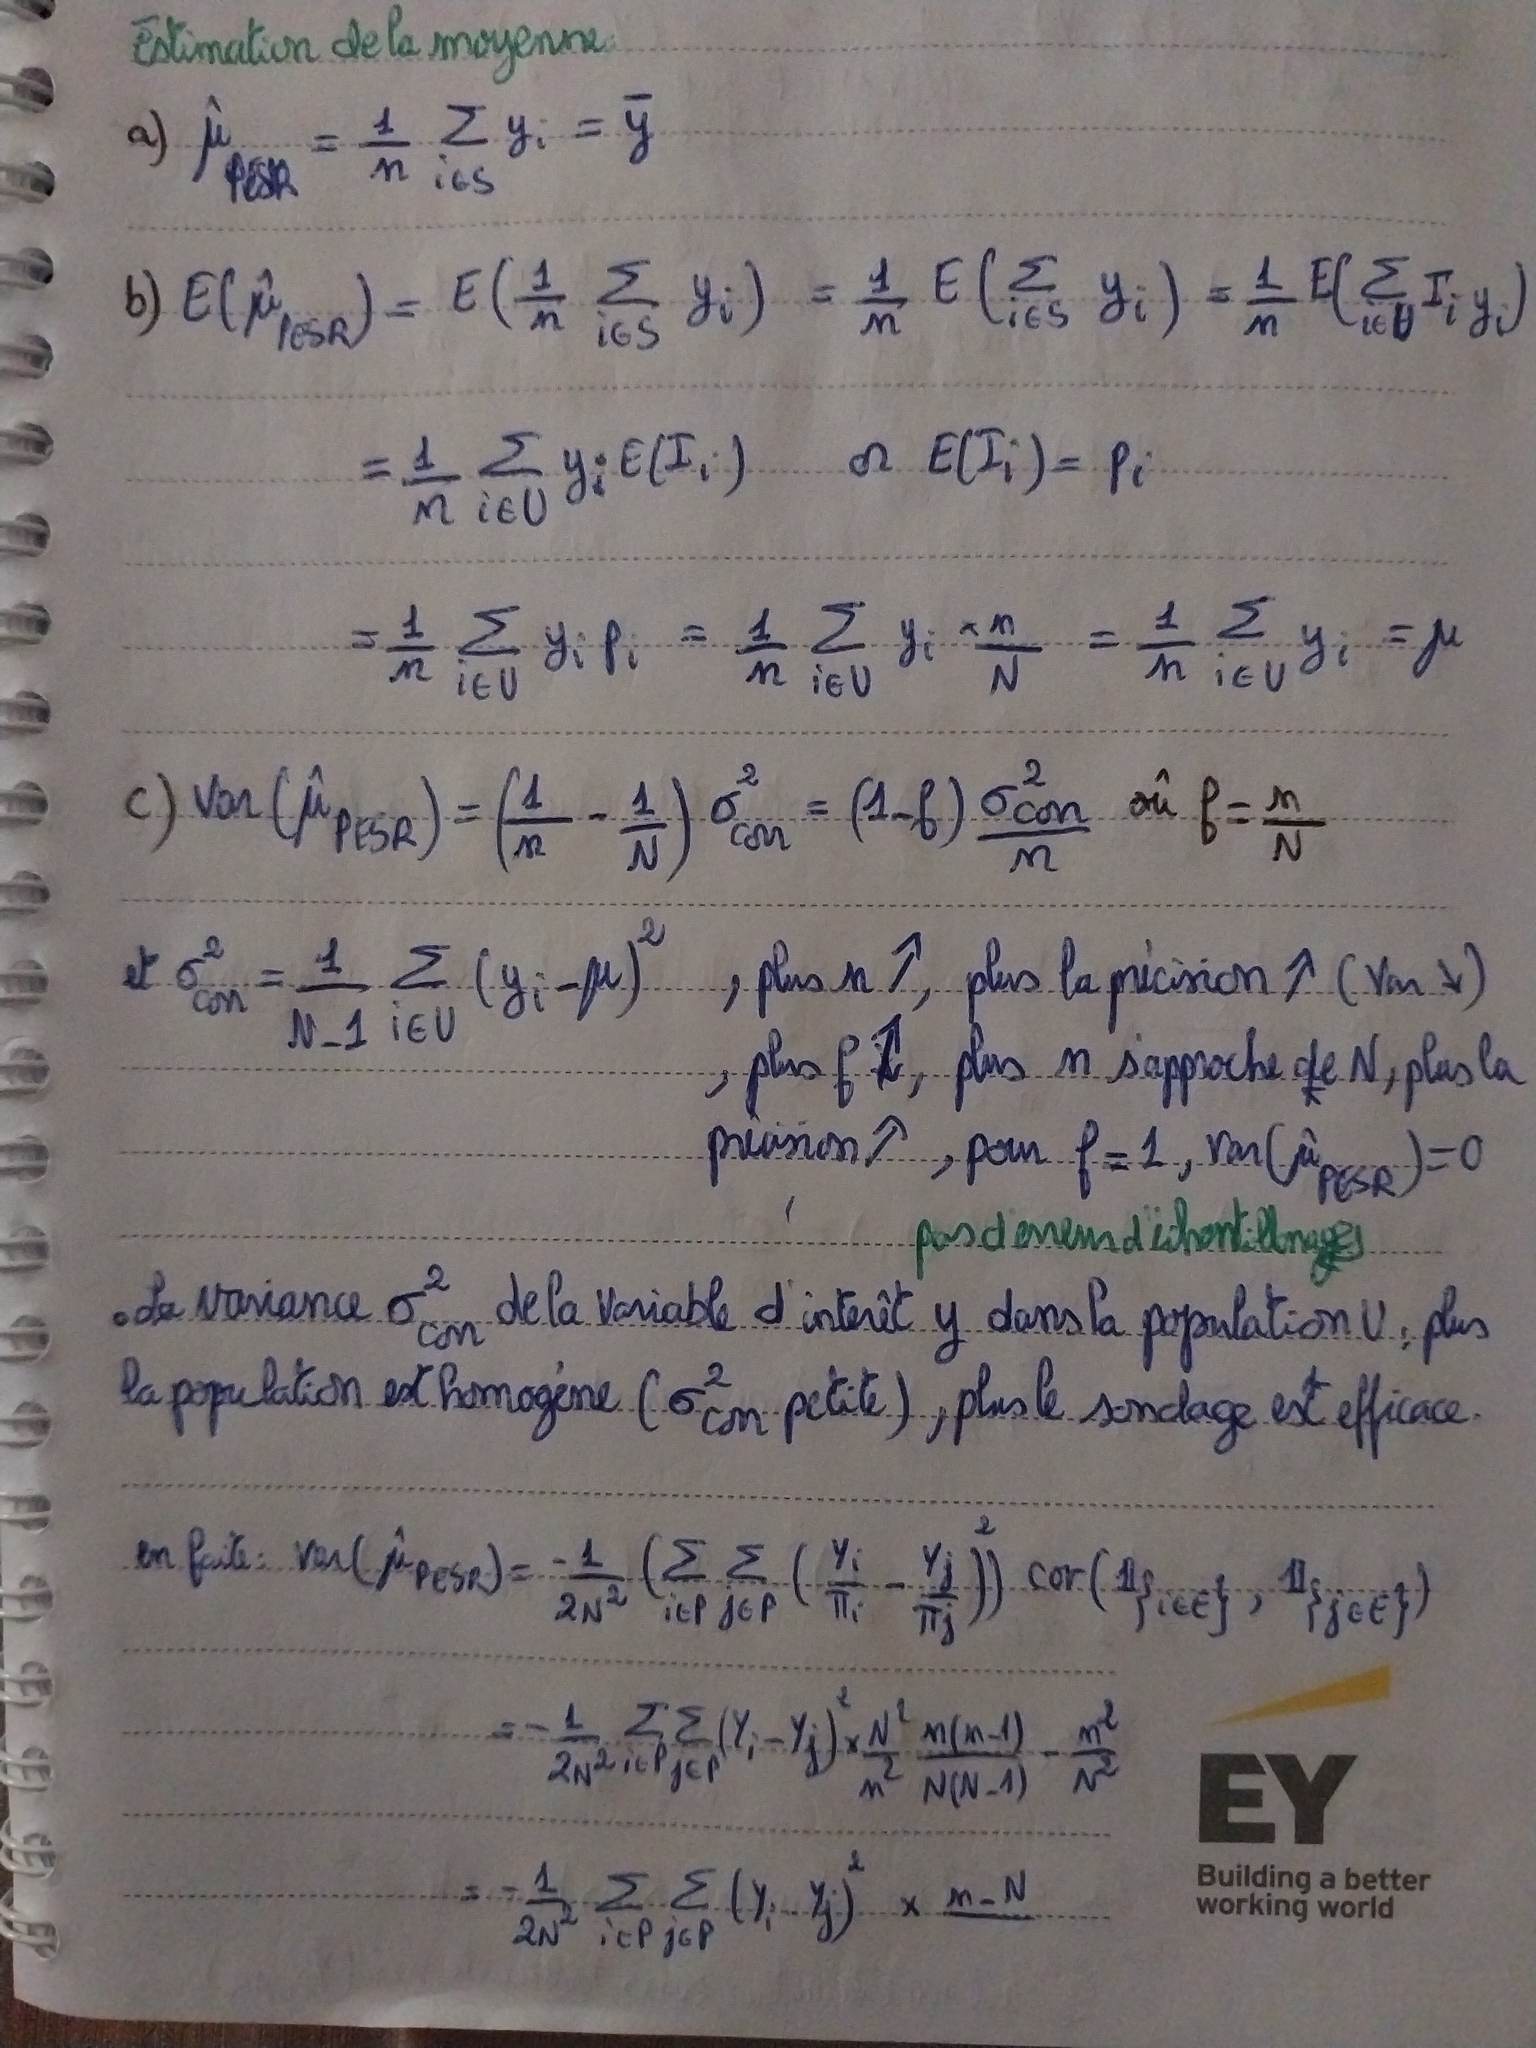 Estimation de la moyenne:
a) μ̂_PESR = 1/n Σ_{i∈S} y_i = ȳ
b) E(μ̂_PESR) = E(1/n Σ_{i∈S} y_i) = 1/n E(Σ_{i∈S} y_i) = 1/n E(Σ_{i∈U} I_i y_i)
= 1/n Σ_{i∈U} y_i E(I_i) or E(I_i) = p_i
= 1/n Σ_{i∈U} y_i p_i = 1/n Σ_{i∈U} y_i × n/N = 1/n Σ_{i∈U} y_i = μ
c) Var(μ̂_PESR) = (1/n - 1/N) σ²_cor = (1-f) σ²_cor/n où f = n/N
et σ²_cor = 1/(N-1) Σ_{i∈U} (y_i - μ)² , plus n ↗, plus la précision ↗ (Var ↘)
, plus f ↗, plus n s'approche de N, plus la
précision ↗ , pour f = 1, Var(μ̂_PESR) = 0
pas d'erreur d'échantillonages
• La variance σ²_cor de la variable d'interêt y dans la population U, plus
la population est homogène (σ²_cor petite), plus le sondage est efficace.
en faite: Var(μ̂_PESR) = -1/2N² (Σ_{i∈P} Σ_{j∈P} (Y_i/π_i - Y_j/π_j)²) cor(𝟙_{i∈E}, 𝟙_{j∈E})
= -1/2N² Σ_{i∈P} Σ_{j∈P} (Y_i - Y_j)² × N²/n² n(n-1)/N(N-1) - n²/N²
= -1/2N² Σ_{i∈P} Σ_{j∈P} (Y_i - Y_j)² × n-N
EY
Building a better
working world